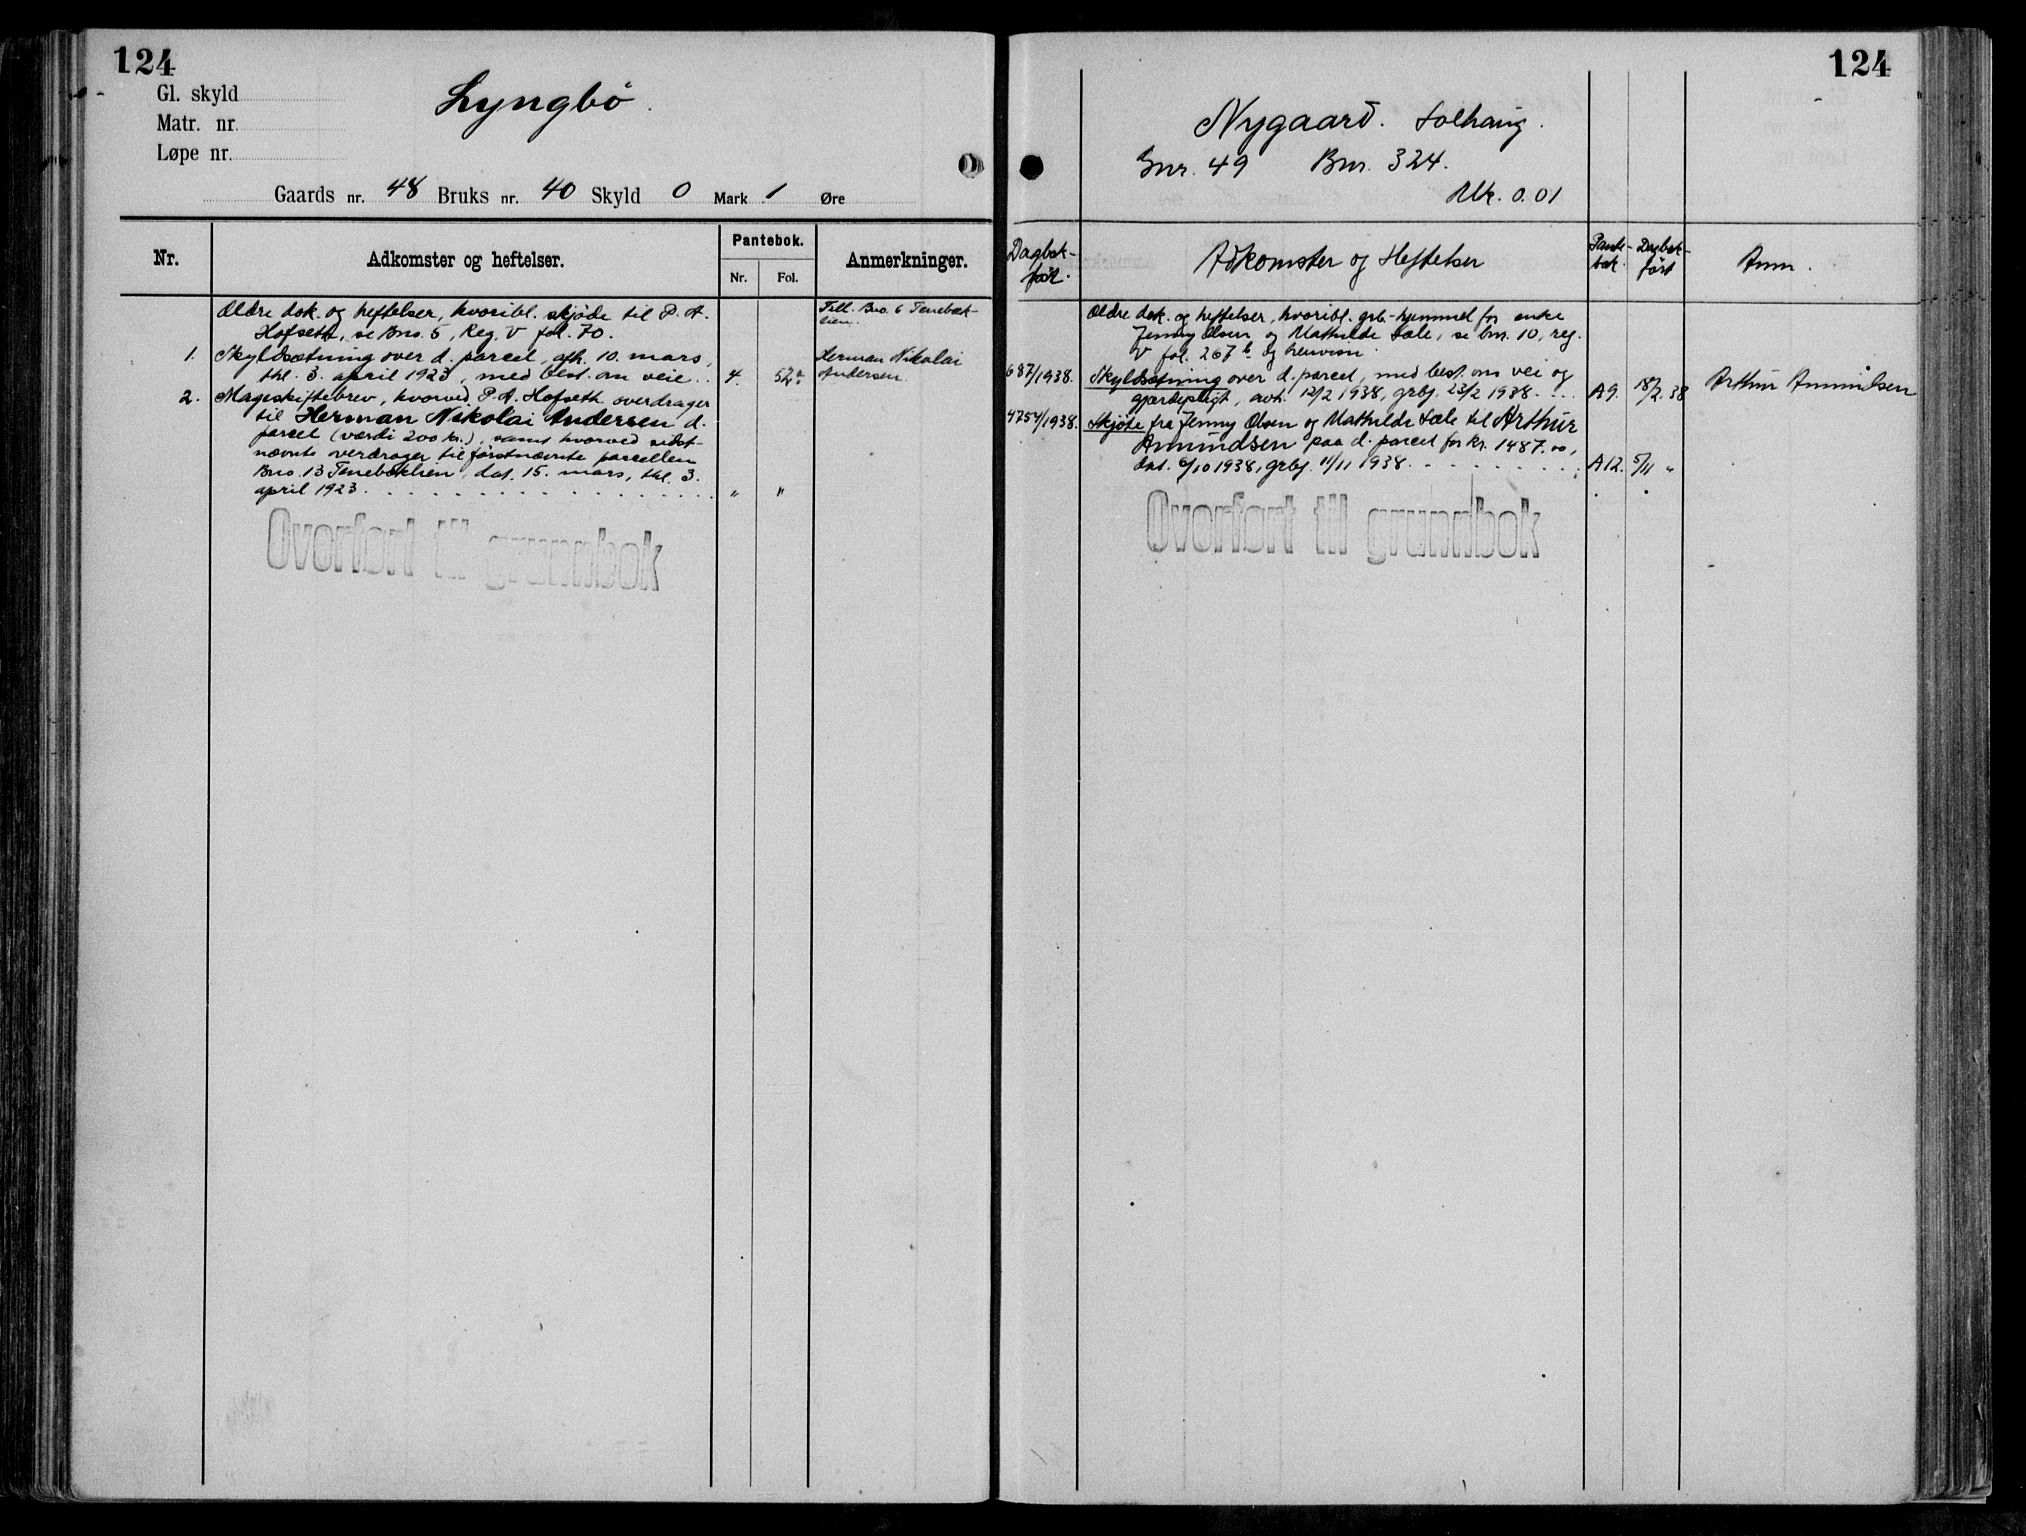 124
Gl. skyld
Matr. nr.
Løpe nr.
Lyngbö.
Gaards nr. 48 Bruks nr. 40 Skyld 0 Mark 1 Øre
Nr. Adkomster og heftelser. Pantebok. Anmerkninger.
Nr. Fol.
Ældre dok. og heftelser, hvoribl. skjöde til P. A.
Hofseth, se Bno. 5, Reg. V fol. 70.
Till. Bno. 6 Tenebæk-
lien.
1. Skyldsætning over d. parcel, afh. 10. mars,
thl. 3. april 1923, med best. om veie.. 4. 52a
Herman Nikolai
Andersen.
2. Mageskiftebrev, hvorved P. A. Hofseth overdrager
til Herman Nikolai Andersen d.
parcel (værdi 200 kr.), samt hvorved sidst-
nævnte overdrager til förstnævnte parcellen
Bno. 13 Tenebæklien, dat. 15. mars, thl. 3.
april 1923. . . . . . . . . . . . . . . . . " "
Overført til grunnbok
124
Nygaard. Solhaug.
Gnr. 49 Bnr. 324.
Mk. 0.01
Dagbok-
før. Adkomster og Heftelser Pante-
bok. Dagbok-
ført Anm.
Ældre dok. og heftelser, hvoribl. grb.-hjemmel for enke
Jenny Olsen og Mathilde Sæle, se bnr. 10, reg.
V fol. 267 b og henvisn.
687/1938. Skyldsætning over d. parcel, med best. om vei og
gjærdepligt, avh. 12/2 1938, grbf. 23/2 1938. . . . A9. 18/2.38
Arthur Amundsen
4754/1938. Skjöte fra Jenny Olsen og Mathilde Sæle til Arthur
Amundsen paa d. parcel for kr. 1487.00,
dat. 6/10 1938, grbf. 11/11 1938. . . . . . . . ; A12. 5/11 "
Overført til grunnbok